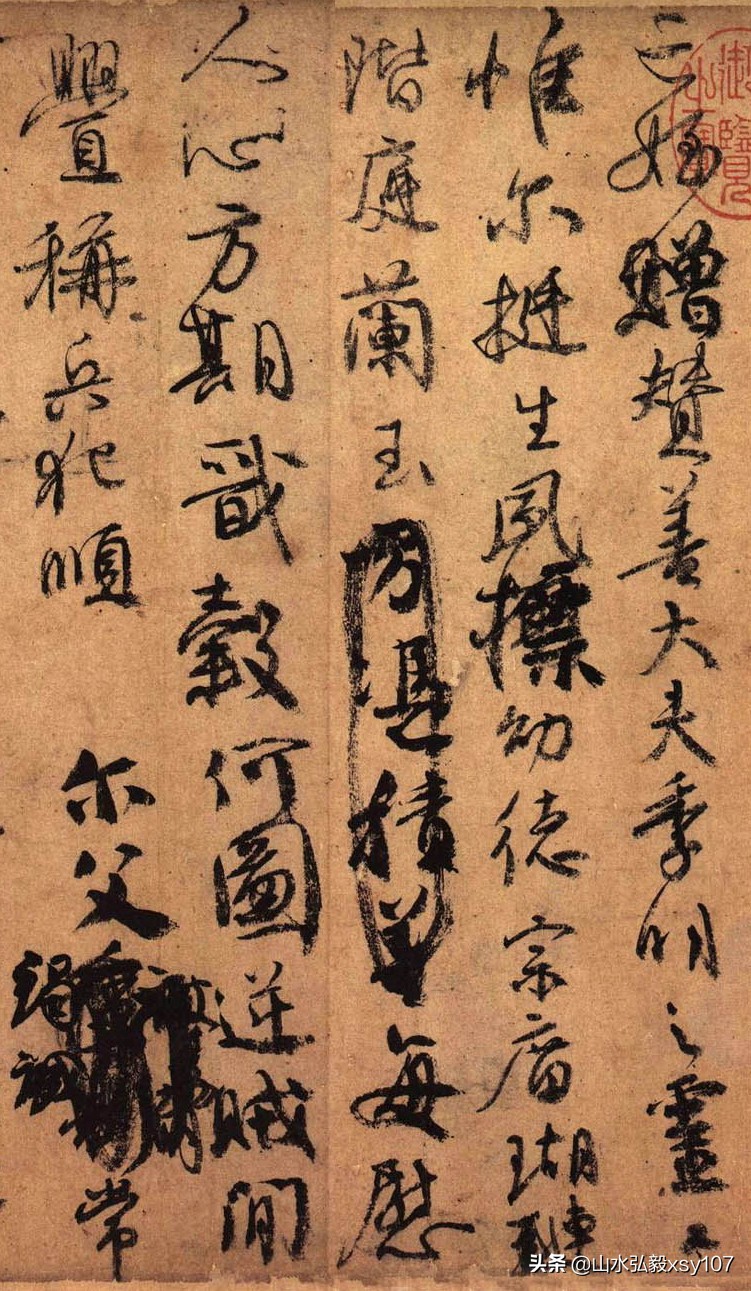 亡姪贈贊善大夫季明之靈曰
惟尔挺生夙標幼德宗廟瑚璉
階庭蘭玉方憑積善每慰
人心方期戩穀何圖逆賊閒
釁稱兵犯順尔父竭誠常
头条 @山水弘毅xsy107